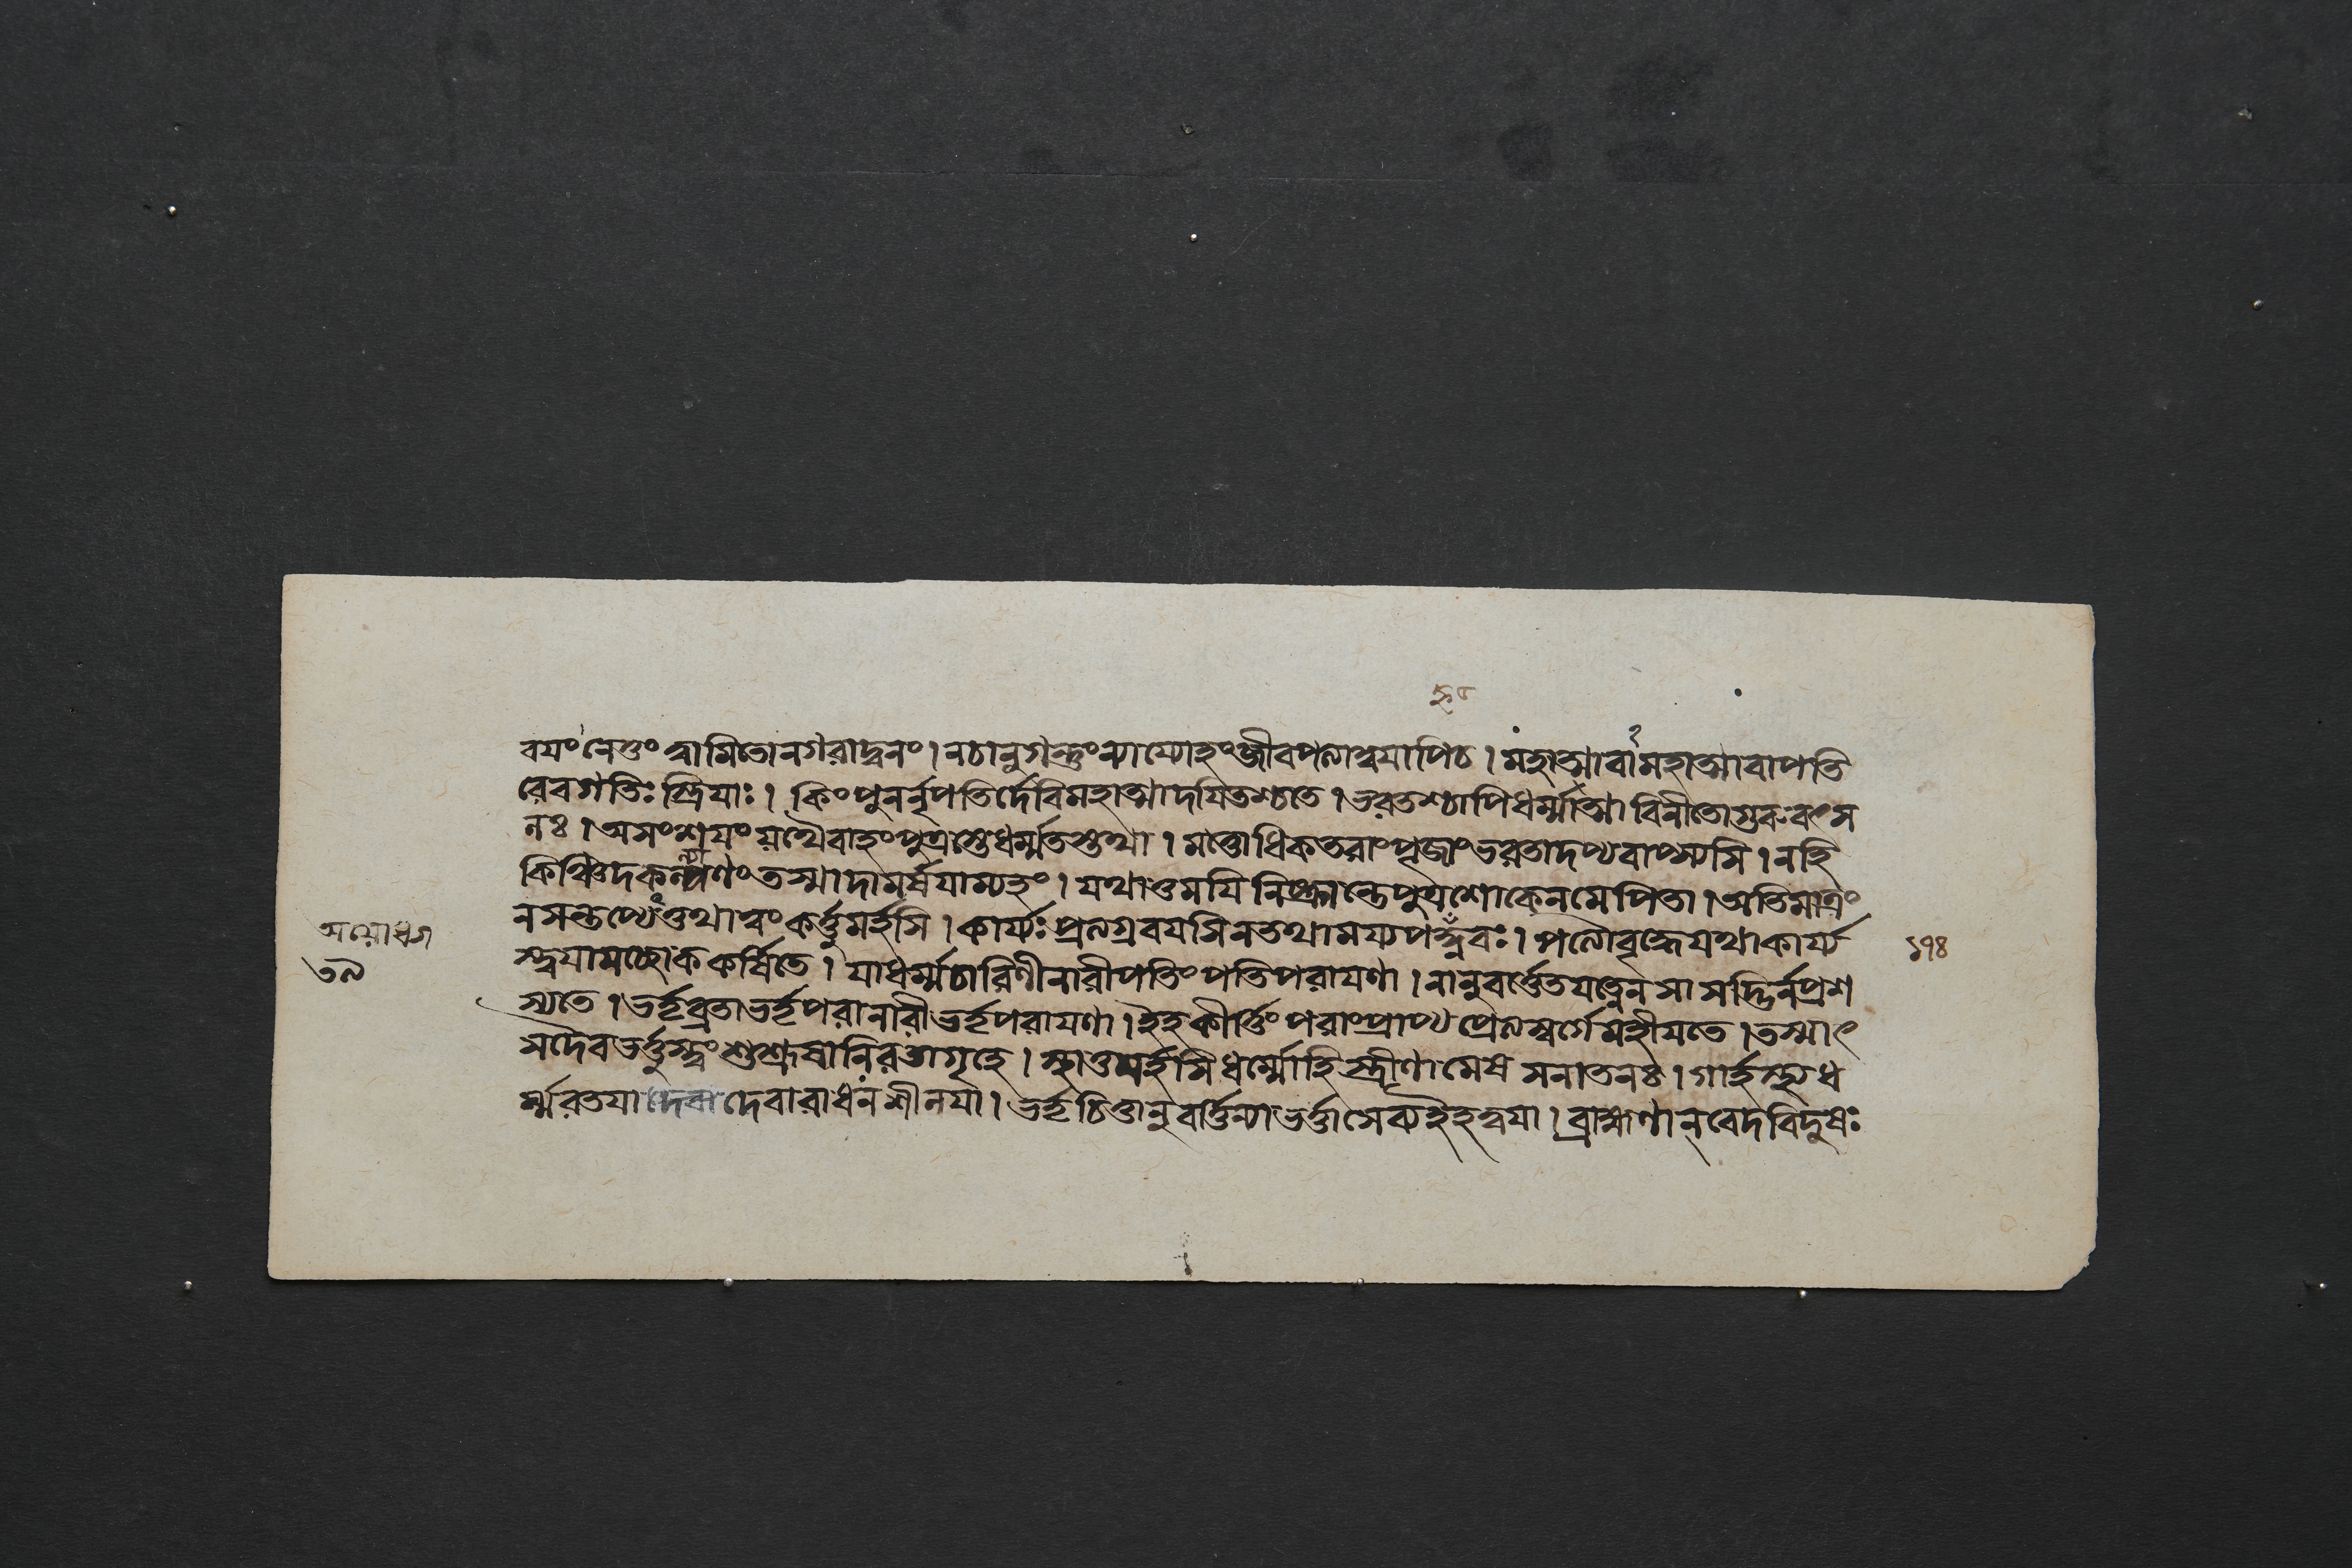 বয়ং নেতুং ত্বামিতো নগরাদ্বনং । ন চানুগন্তুং ন্যায্যোহং জীবপত্যা ত্বয়াপি চ । মহাত্মা বামহাত্মা বা পতি
রেব গতিঃ স্ত্রিয়াঃ । কিং পুনর্নৃপতির্দেবি মহাত্মা দয়িতশ্চ তে । ভরতশ্চাপি ধর্ম্মাত্মা বিনীতো গুরুবৎস
লঃ । অসংশয়ং যথৈবাহং পুত্রস্তে ধর্ম্মতস্তথা । মত্তোধিকতরাং পূজাং ভরতাদপ্যবাপ্স্যসি । ন হি
কিঞ্চিদকল্যাণং তস্মাদামর্ষয়াম্যহং । যথা তু ময়ি নিষ্ক্রান্তে পুত্রশোকেন মে পিতা । অতিমাত্রং
ন সন্তপ্যেত্তথা ত্বং কর্ত্তুমর্হসি । কার্য্যঃ প্রত্যগ্রবয়সি ন তথা ময্যপহ্নবঃ । পত্যৌ বৃদ্ধে যথা কার্য্য
স্ত্বয়া মচ্ছোককর্ষিতে । যা ধর্ম্মচারিণী নারী পতিং পতিপরায়ণা । নানুবর্ত্তেত যত্নেন সা সদ্ভির্ন প্রশ
স্যতে । ভর্তৃব্রতা ভর্তৃপরা নারী ভর্তৃপরায়ণা । ইহ কীর্ত্তিং পরাং প্রাপ্য প্রেত্য স্বর্গে মহীয়তে । তস্মাৎ
সদৈব ভর্ত্তুস্ত্বং শুশ্রূষানিরতা গৃহে । স্থাতুমর্হসি ধর্ম্মো হি স্ত্রীণামেষ সনাতনঃ । গার্হস্থ্যধ
র্ম্মরতয়া দেবারাধনশীলয়া । ভর্তৃচিত্তানুবর্ত্তিন্যা ভর্ত্তা সেব্য ইহ ত্বয়া । ব্রাহ্মণান্ বেদবিদুষঃ
অযোধ্যা
৩৯
১৭৪